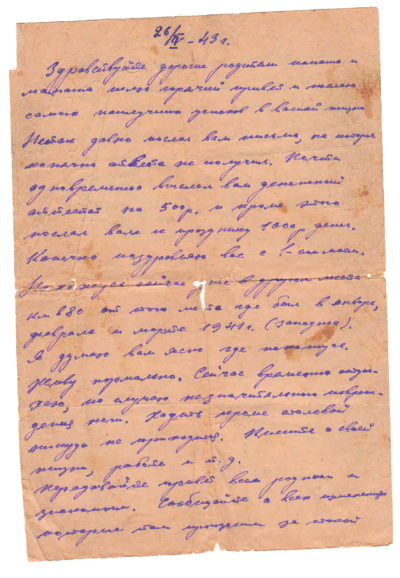 26/IV-43 г.
Здравствуйте дорогие родители папаша и
мамаша шлю горячий привет и желаю
самых наилучших успехов в вашей жизни
Не так давно послал вам письмо, на которое
конечно ответа не получил. Почти
одновременно выслал вам денежный
аттестат на 500р. и кроме этого
послал вам к празднику 1000р денег.
Конечно поздравляю вас с 1-ым мая.
Нахожусь сейчас уже в другом месте
км в 80 от того места где был в январе,
феврале и марте 1941г. (западнее).
Я думаю вам ясно где нахожусь.
Живу нормально. Сейчас временно отды-
хаю, по случаю незначительного повреж-
дения ноги. Ходить кроме столовой
никуда не приходится. Пишите о своей
жизни, работе и т.д.
Передавайте привет всем родным и
знакомым. Сообщайте о всех изменениях
которые там произошли за такой